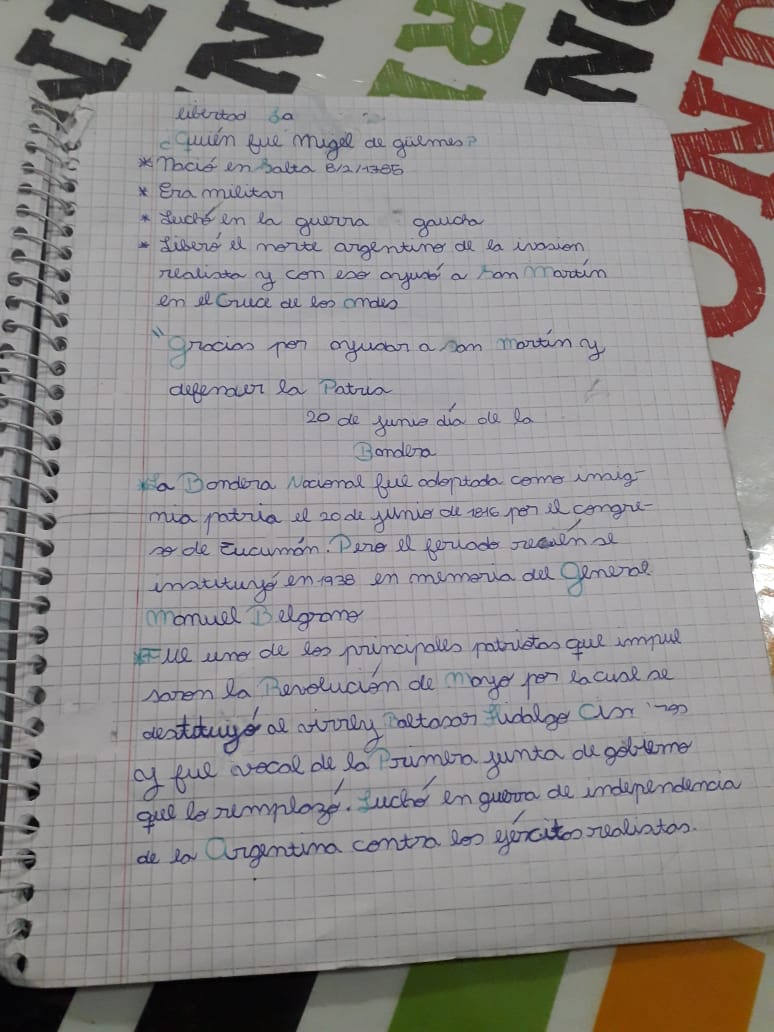 IN
ON
RI
ON
UNO
libertad La
¿Quién fue Migel de güemes?
* Nació en Salta 8/2/1785
* Era militar
* Luchó en la guerra gaucha
* Liberó el norte argentino de la ivasion
realista y con eso ayudó a San Martín
en el Cruce de los andes
"Gracias por ayudar a San Martín y
defender la Patria
20 de junio día de la
Bandera
* La Bandera Nacional fue adoptada como insig-
nia patria el 20 de junio de 1816 por el congre-
so de Tucumán. Pero el feriado recién se
instituyó en 1938 en memoria del General
Manuel Belgrano
* Fue uno de los principales patriotas que impul
saron la Revolución de Mayo por la cual se
destituyó al virrey Baltasar Hidalgo
y fue vocal de la Primera junta de gobierno
que lo remplazó. Luchó en guerra de independencia
de la Argentina contra los ejércitos realistas.